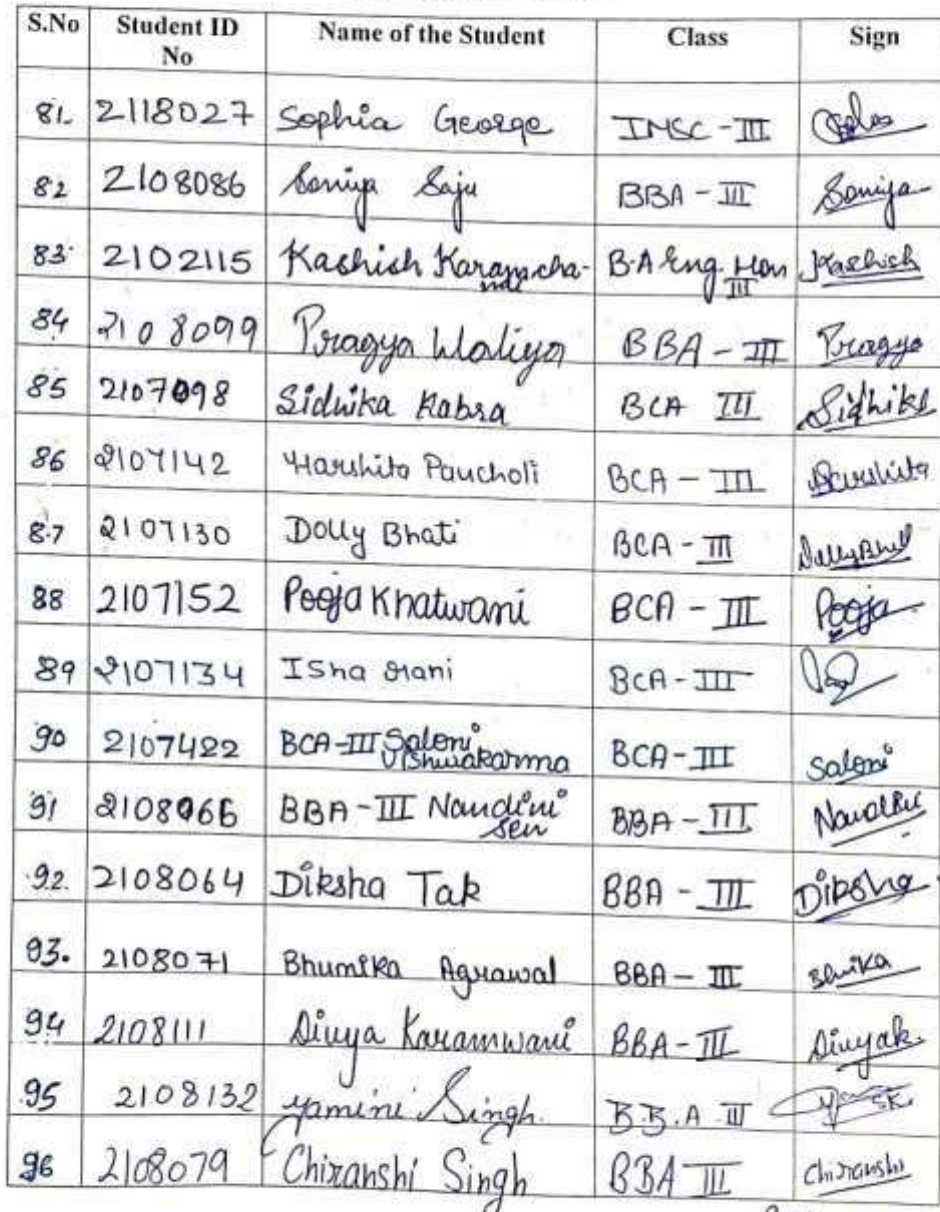 S.No Student ID No Name of the Student Class Sign
81. 2118027 Sophia George IMSC-III
82 2108086 Soniya Saju BBA-III Soniya
83 2102115 Kashish Karamcha-nd B.A Eng. Hon III Kashish
84 2108099 Pragya Waliya BBA-III Pragya
85 2107098 Sidhika Kabra BCA III Sidhika
86 2107142 Harshita Pancholi BCA-III Harshita
87 2107130 Dolly Bhati BCA-III Dolly Bhati
88 2107152 Pooja Khatwani BCA-III Pooja
89 2107134 Isha Irani BCA-III
90 2107422 BCA-III Saloni Vishwakarma BCA-III Saloni
91 2108066 BBA-III Nandini Sen BBA-III Nandini
92. 2108064 Diksha Tak BBA-III Diksha
93. 2108071 Bhumika Agrawal BBA-III
94 2108111 Divya Karamwani BBA-III Divyak.
95 2108132 Yamini Singh. B.B.A III
96 2108079 Chiranshi Singh BBA III Chiranshi